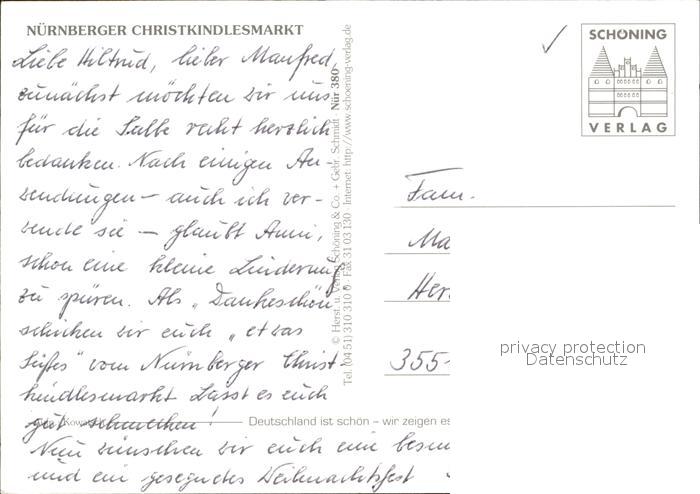 NÜRNBERGER CHRISTKINDLESMARKT
Liebe Hiltrud, lieber Manfred,
zunächst möchten wir uns
für die Salbe recht herzlich
bedanken. Nach einigen An-
wendungen – auch ich ver-
wende sie – glaubt Anni,
schon eine kleine Linderung
zu spüren. Als „Dankeschön"
schicken wir euch „etwas
Süßes" vom Nürnberger Christ
kindlesmarkt. Lasst es euch
gut schmecken!
Nun wünschen wir euch eine besin
und ein gesegnetes Weihnachtsfest
Deutschland ist schön – wir zeigen es
© Herst. u. Verlag Schöning & Co. + Gebr. Schmidt · Nür 380
Tel. (04 51) 310 310 · Fax 31 03 130 · Internet: http://www.schoening-verlag.de
SCHÖNING
VERLAG
Fam.
Ma
Her
355
privacy protection
Datenschutz